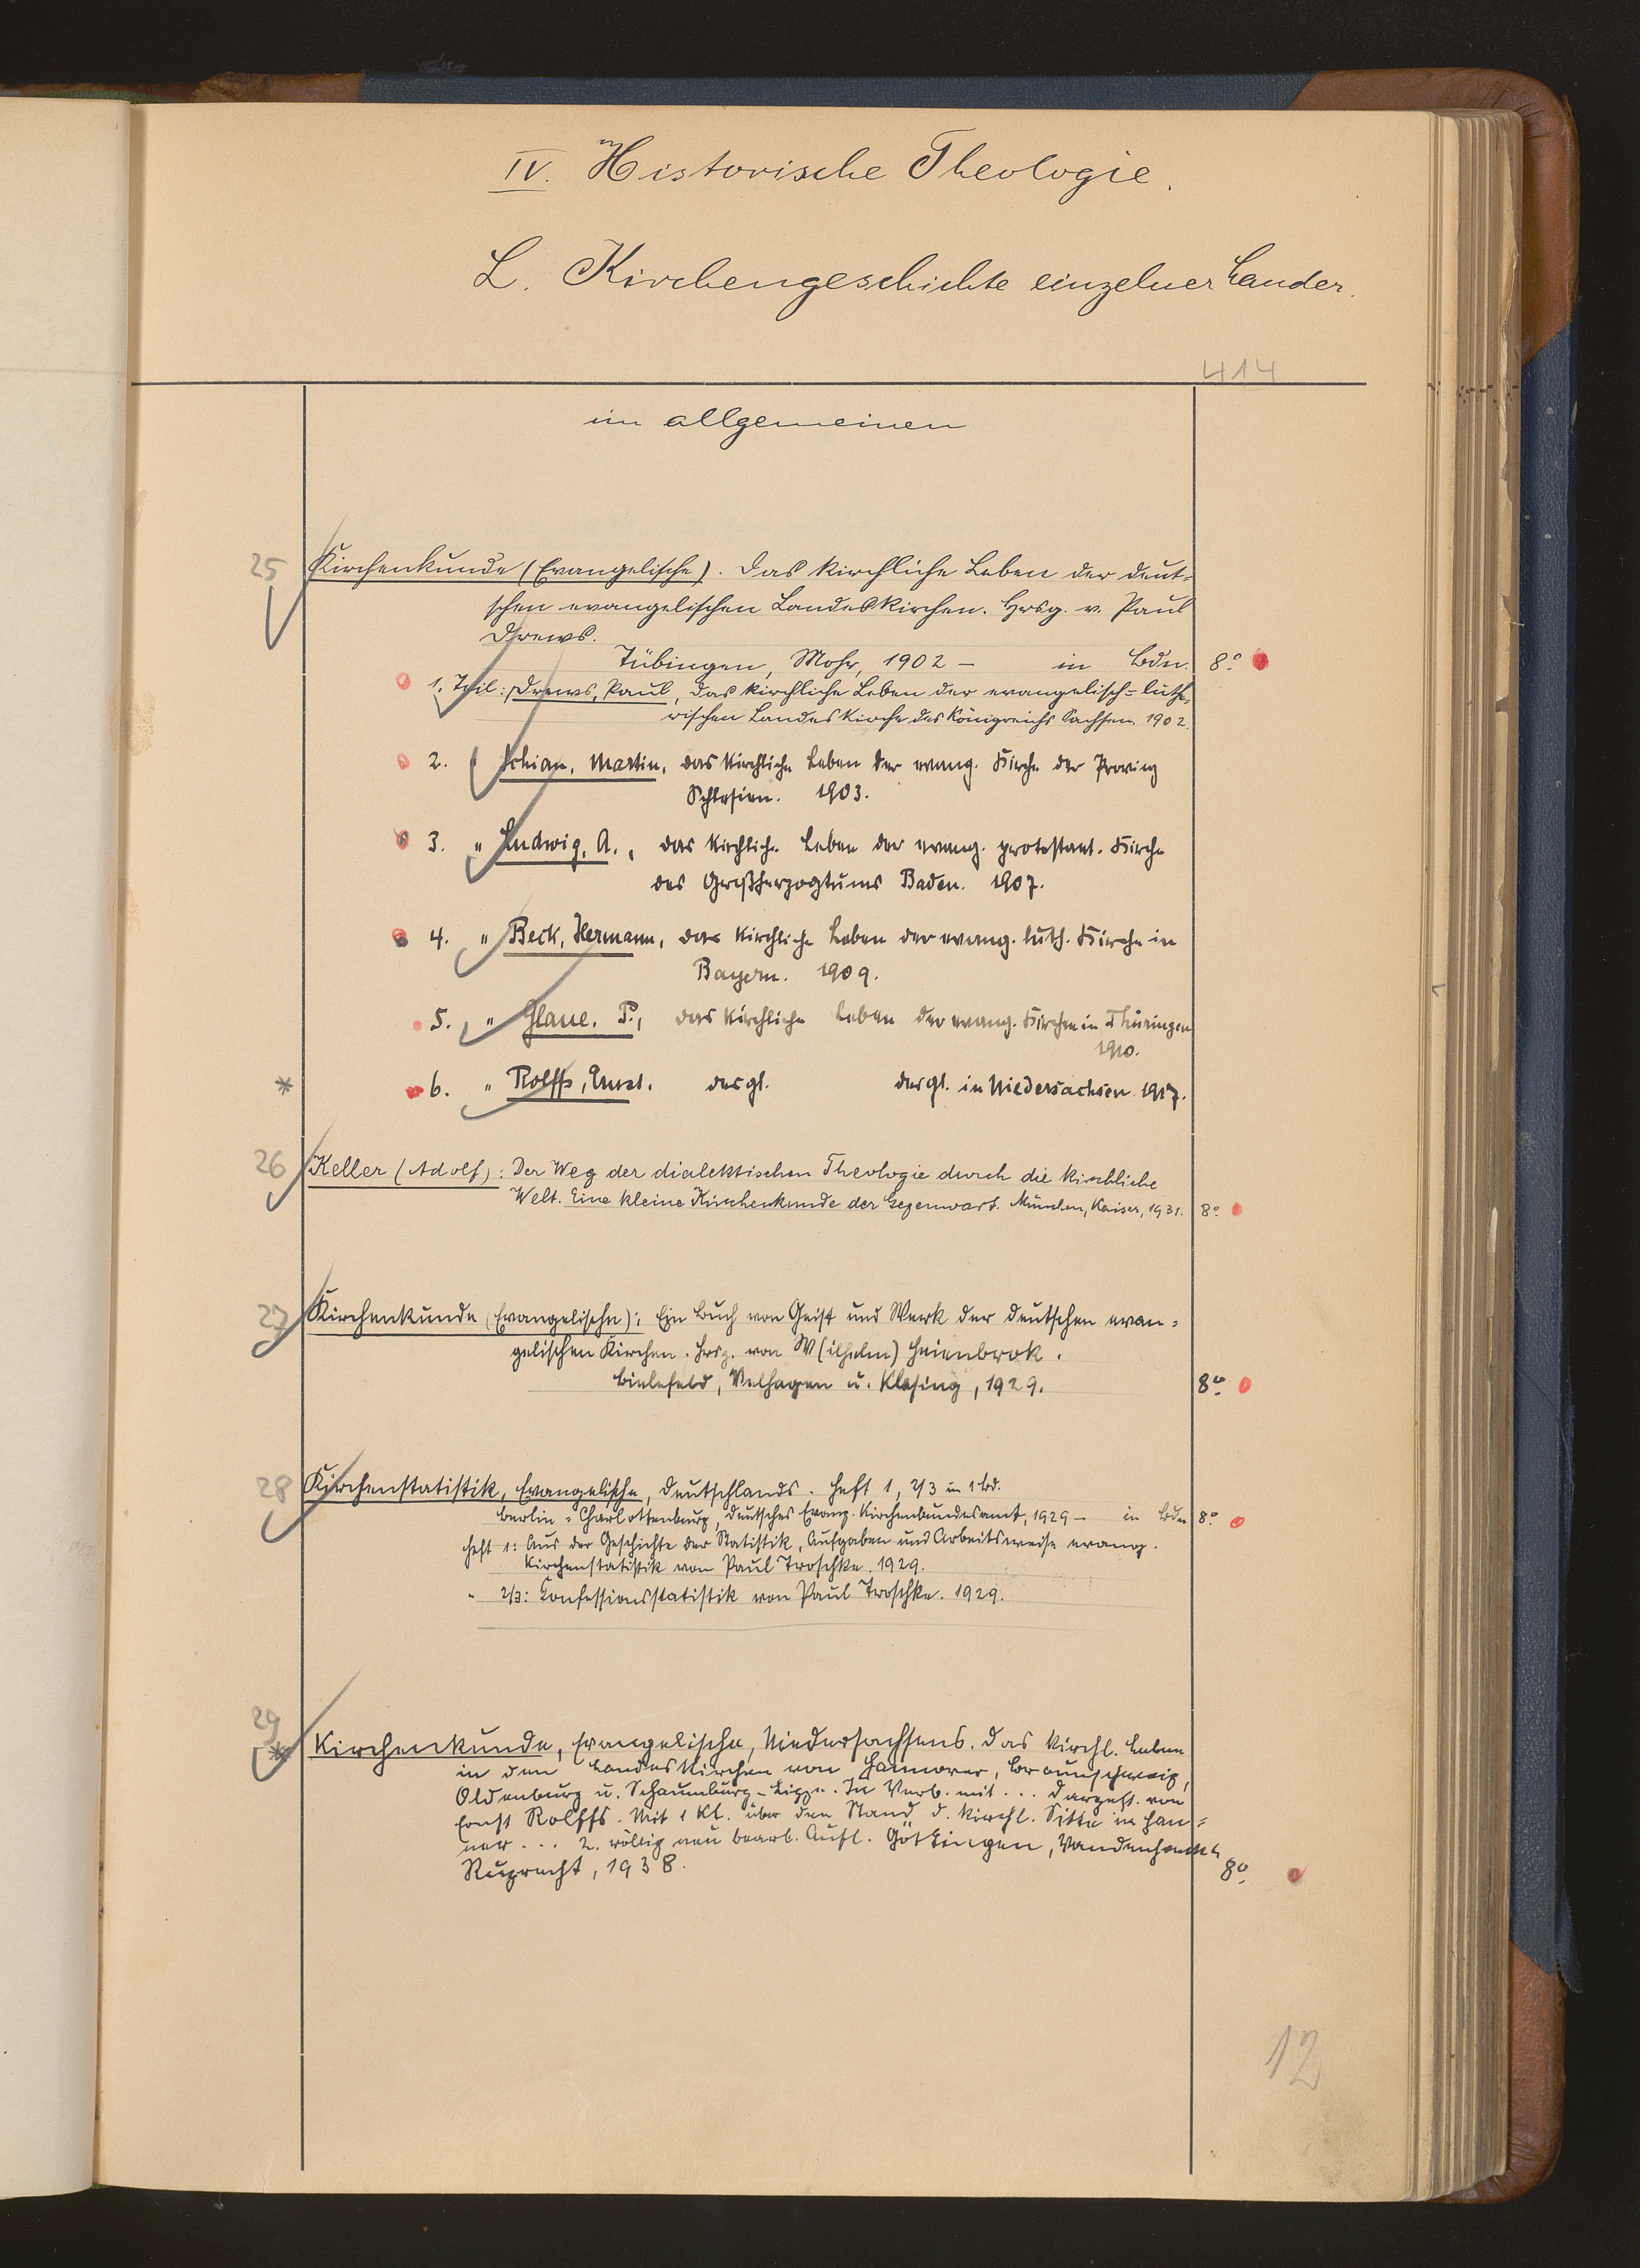 IV. Historische Theologie.
L. Kirchengeschichte einzelner Länder.
414
im allgemeinen
25
Kirchenkunde (Evangelische). Das kirchliche Leben der deut-
schen evangelischen Landeskirchen. Hrsg. v. Paul
Drews.
Tübingen, Mohr, 1902 – in Bdn. 8°
1. Teil: Drews, Paul, Das kirchliche Leben der evangelisch-luthe-
rischen Landeskirche des Königreichs Sachsen. 1902.
2. " Schian, Martin, das kirchliche Leben der evang. Kirche der Provinz
Schlesien. 1903.
3. " Ludwig, A., das kirchliche Leben der evang. protestant. Kirche
des Großherzogtums Baden. 1907.
4. " Beck, Hermann, das kirchliche Leben der evang. luth. Kirche in
Bayern. 1909.
5. " Glaue, P., das kirchliche Leben der evang. Kirchen in Thüringen
1910.
* 6. " Rolffs, Ernst. desgl. desgl. in Niedersachsen. 1917.
26
Keller (Adolf): Der Weg der dialektischen Theologie durch die kirchliche
Welt. Eine kleine Kirchenkunde der Gegenwart. München, Kaiser, 1931. 8°
27
Kirchenkunde (Evangelische): Ein Buch von Geist und Werk der deutschen evan-
gelischen Kirchen. Hrsg. von W(ilhelm) Heienbrok.
Bielefeld, Velhagen u. Klasing, 1929. 8°
28
Kirchenstatistik, Evangelische, Deutschlands. Heft 1, 2/3 in 1 Bd.
Berlin-Charlottenburg, Deutsches Evang. Kirchenbundesamt, 1929 – in Bdn 8°
Heft 1: Aus der Geschichte der Statistik, Aufgaben und Arbeitsweise evang.
Kirchenstatistik von Paul Troschke. 1929.
" 2/3: Konfessionsstatistik von Paul Troschke. 1929.
29
* Kirchenkunde, Evangelische, Niedersachsens. Das kirchl. Leben
in den Landeskirchen von Hannover, Braunschweig,
Oldenburg u. Schaumburg-Lippe. In Verb. mit ... dargest. von
Ernst Rolffs. Mit 1 Kt. über den Stand d. kirchl. Sitte in Han-
nover ... 2. völlig neu bearb. Aufl. Göttingen, Vandenhoeck &
Ruprecht, 1938. 8°
12